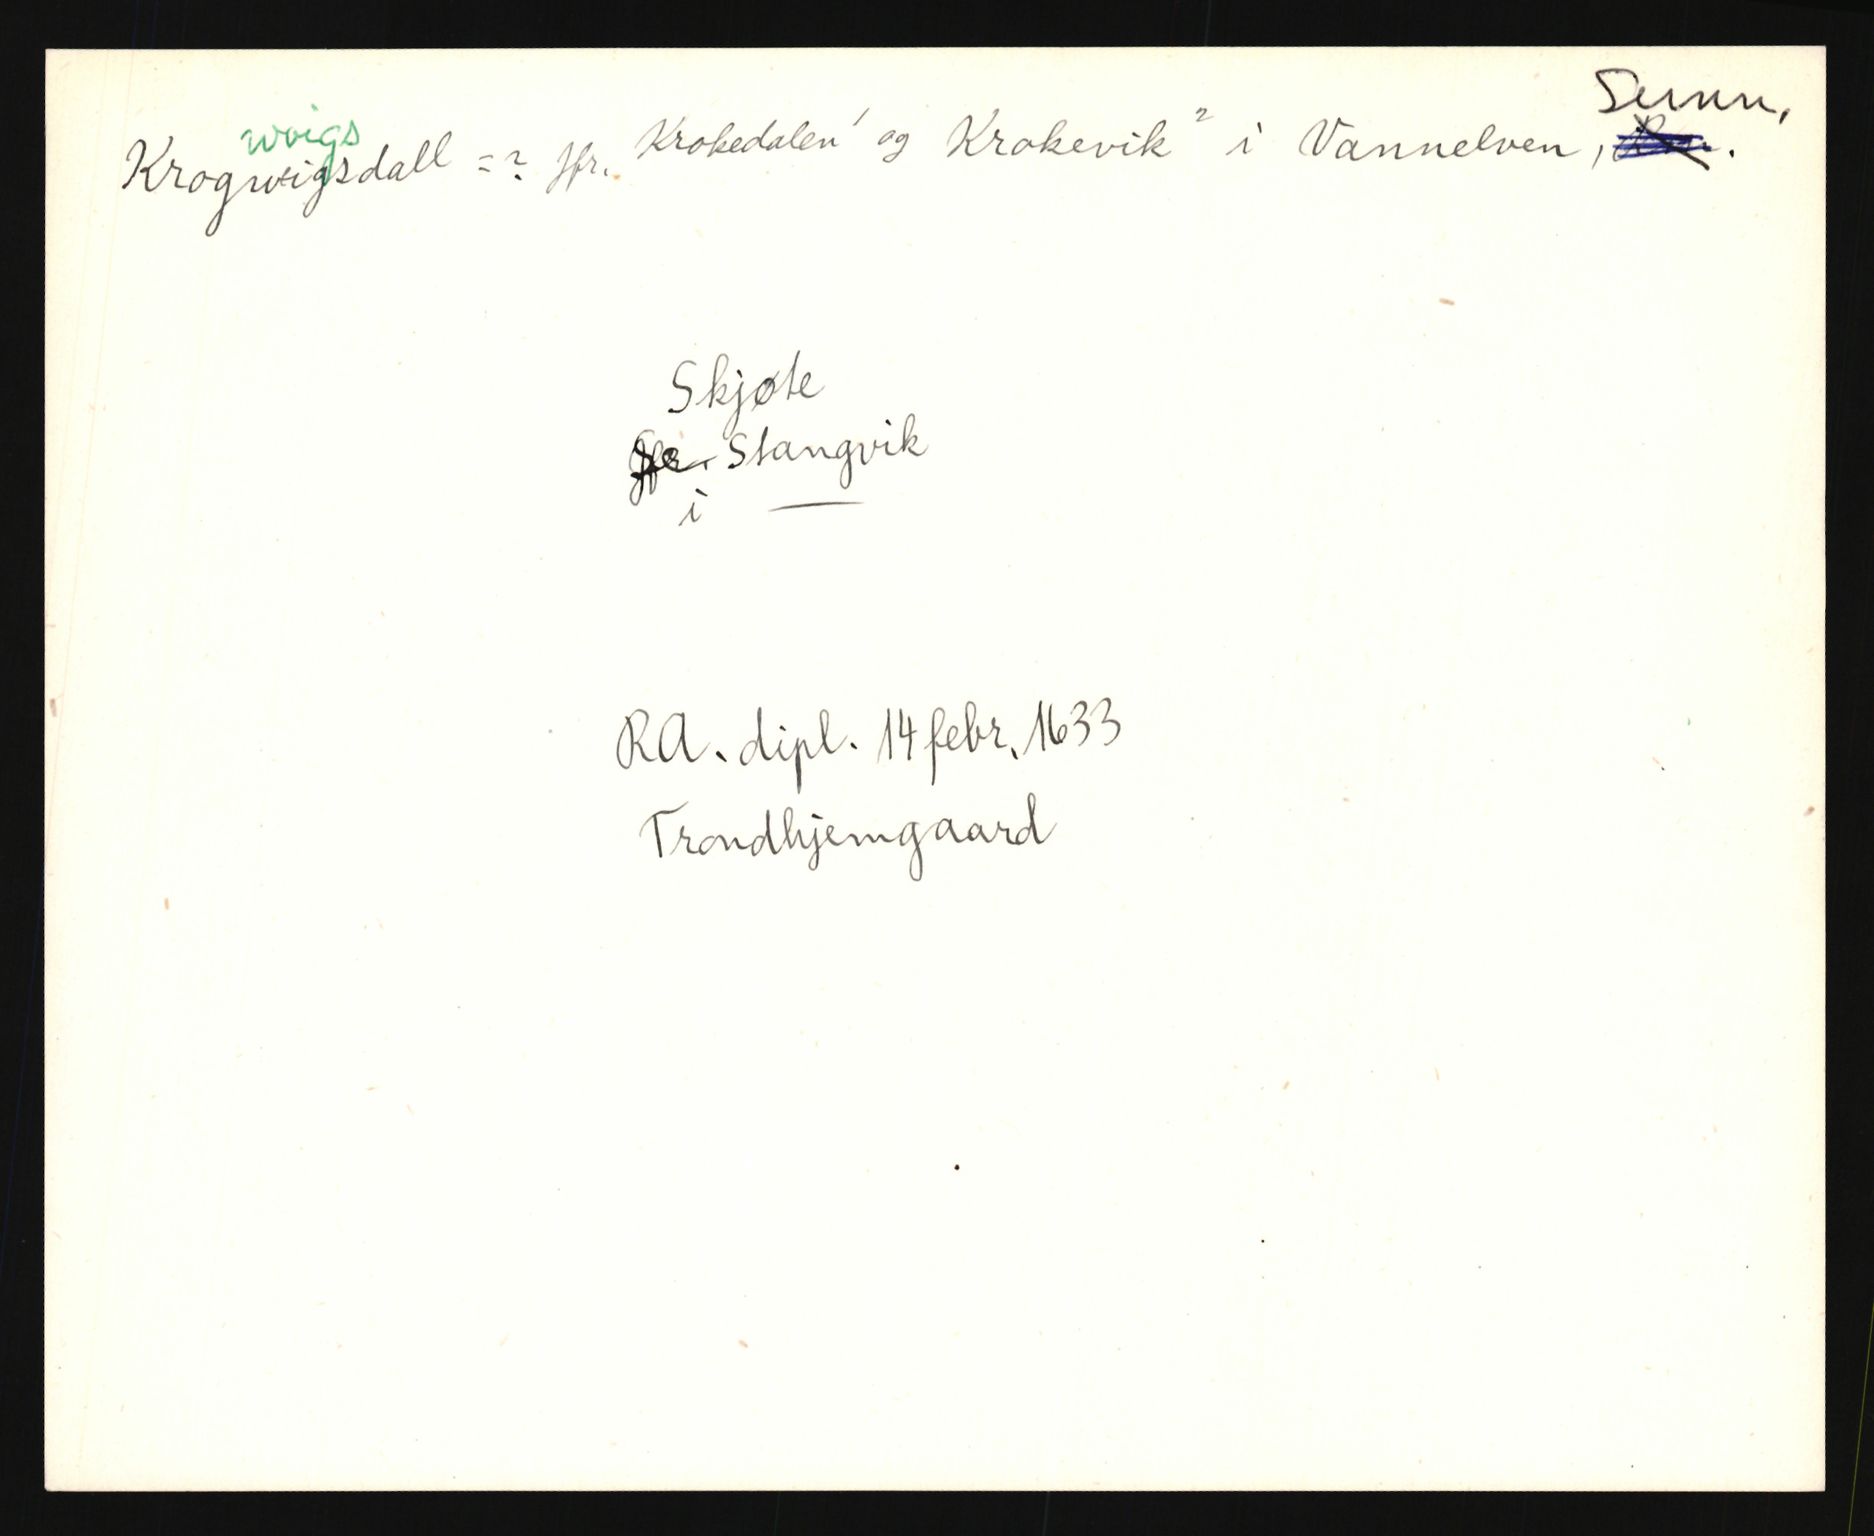 woigs
Sunm.
Krogwigsdall = ? jfr. Krokedalen¹ og Krokevik² i Vannelven, .
Skjøte
jfr. Stangvik
i —
RA. dipl. 14 febr. 1633
Trondhjemgaard